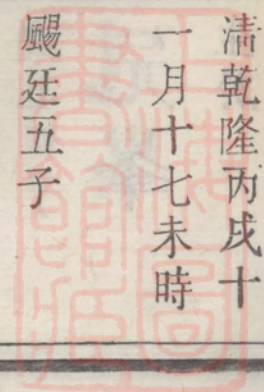 清乾隆丙戌十
一月十七未時
颺廷五子